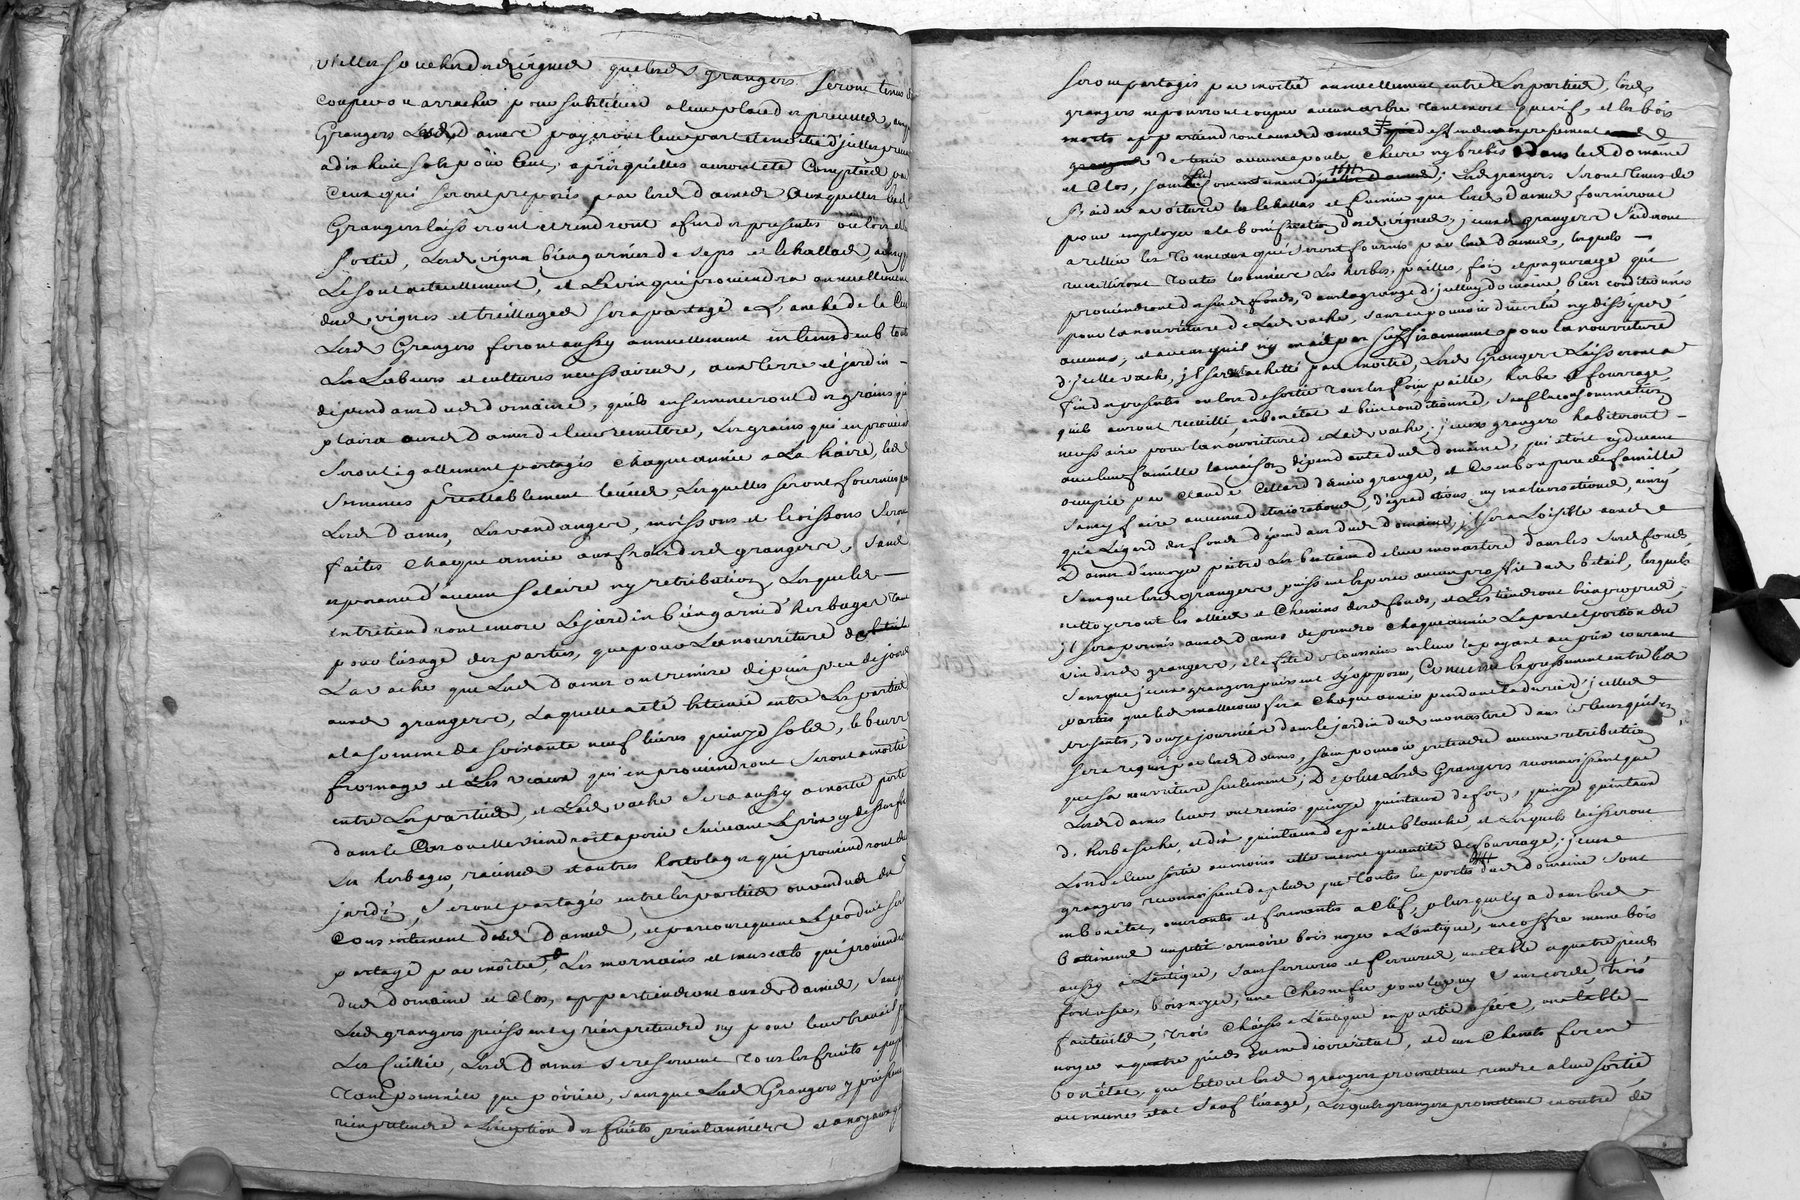 vielles souches desd vignes que lesd grangers seront tenus de
couper ou arracher pour substituer a leur place des
Grangers Lesd dames payeront leur part et moitié d'jcelles
a dix huit sols pour Cent, aprés qu'elles auront été Comptées par
Ceux qui seront preposés par lesd dames auxquelles lesd
Grangers laisseront et rendront a fin des presentes ou lors de
sortie, Lesd vignes bien garnies de seps et echallas, ainsy qu
Le sont actuellement, et Le vin qui proviendra annuellement
desd vignes et treillages sera partagé a L'anche de la Cuve
Lesd Grangers feront aussy annuellement en tems deub tous
Les Labeurs et cultures necessaires, aux terre et jardin
dépendants dud domaine, qu'ils ensemenceront des grains qu'il
plaira auxd dames de leur remettre, Les grains qui en proviendront
seront égallement partagés chaque année a La haire, les
semences préallablement levées Lesquelles seront fournies par
Lesd dames, Les vandanges, moissons et
faites chaque année aux fraix desd grangers, sans
esperance d'aucun salaire ny retribution, Lesquels
entretiendront encore Le jardin bien garni d'herbages tant
pour l'usage des parties, que pour La nourriture de
La vache que Lesd Dames ont remise depuis peu de jours
auxd grangers, Laquelle a été entre Les parties
a la somme de soixante neuf livres quinze sols, le beurre
fromage et Les veaux qui en proviendront seront a moitié
entre Les parties, et Lad vache sera aussy a moitié perte
dans le Cas ou elle viendroit a perir suivant Le prix cy dessus
Les herbages, racines et autres hortolages qui proviendront du
jardin, seront partagés entre les parties ou vendus du
consentement desd Dames, et par consequent Le produit sera
partagé par moitié, Les mornains et muscats qui proviendront
dud domaine et Clos, appartiendront auxd Dames, sans que
Lesd grangers puissent y rien pretendre ny pour leur travail
Les Cuillir, Lesd Dames se reservent tous les fruits a pepin
Tant pommiers que poiriers, sans que Lesd Grangers y puissent
rien pretendre a L'exception des fruits printanniers et a noyaux qui
seront partagés par moitié annuellement entre Les parties, lesd
grangers ne pourront couper aucun arbre tant mort que vif, et les bois
morts appartiendront auxd dames deffendu expressement
de tenir aucune poule, chevre ny brebis dans led domaine
et Clos, sans consentement Lesd grangers seront tenus de
s'aider a voiturer les echallas et fumier que lesd Dames fourniront
pour employer a la bonification desd vignes, jceux grangers s'aideront
a relier Les Tonneaux qui seront fournis par lesd dames, lesquels
receuilliront toutes les années Les herbes, pailles, foin et paquerage qui
proviendront desd fonds, dans la grange d'jcelluy domaine bien conditionnés
pour La nourriture de Lad vache, sans en pouvoir divertir ny dissiper
aucuns, et au cas qu'il n'y en ait pas suffisamment pour La nourriture
d'jcelle vache, jl sera acheté par moitié, Lesd Grangers Laisseront a
fin des presentes ou lors de sortie tous les foin, paille, herbe et fourrage
qu'ils auront receuilli, en bon état et bien conditionné, sauf la consommation
necessaire pour La nourriture de Lad vache; jceux grangers habiteront
avec leur famille La maison dépendante dud domaine, qui étoit cy devant
occupée par Claude Collard d'enier granger, et Comme bon pere de famille
sans y faire aucunes deteriorations, dégradations ny malversations, ainsy
qu'a L'égard des fonds dépendants dud domaine, jl sera Loisible auxd
Dames d'envoyer paitre Les bestiaux de leur monastere dans les susd fonds
sans que lesd grangers puissent esperer aucun proffit dud betail, lesquels
nettoyeront les allées et chemins desd fonds, et Les tiendront bien propres,
jl sera permis auxd Dames de prendre chaque année La part et portion du
vin desd grangers, a la fête de Toussaint en leur payant au prix courant
sans que jceux grangers puissent s'y opposer, Convenu expressement entre les
parties que led fera chaque année pendant la durée d'jcelles
presentes, douze journées dans le jardin dud monastere dans le tems qu'il en
sera requis par lesd Dames, sans pouvoir pretendre aucune retribution
que sa nourriture seulement; De plus Lesd Grangers reconnoissent que
Lesd Dames leurs ont remis quinze quintaux de foin, quinze quintaux
d'herbe seche, et dix quintaux de paille blanche, et Lesquels laisseront
Lors de leur sortie au moins cette meme quantité de fourrage, jceux
grangers reconnoissent de plus que toutes les portes dud domaine sont
en bon état, ouvrantes et fermantes a Clef, plus qu'il y a dans led
batiment un petit armoire bois noyer a L'antique, un coffre meme bois
aussy a L'antique, sans serrures et ferrures, une table a quatre pieds
fort usée, bois noyer, une pour ny sans corde, trois
fauteuils, trois Chaises a L'antique en partie usées, une table
noyer a quatre pieds en mediocre état, et deux Chenets fer en
bon état, que le tout lesd grangers promettent rendre a leur sortie
au meme état sauf l'usage, Lesquels grangers promettent en outre de